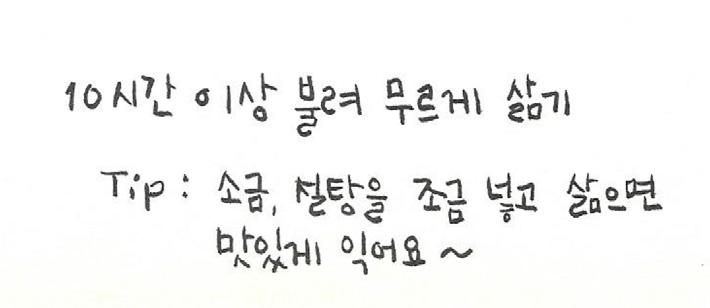 10시간 이상 불려 무르게 삶기
Tip : 소금, 설탕을 조금 넣고 삶으면
맛있게 익어요~